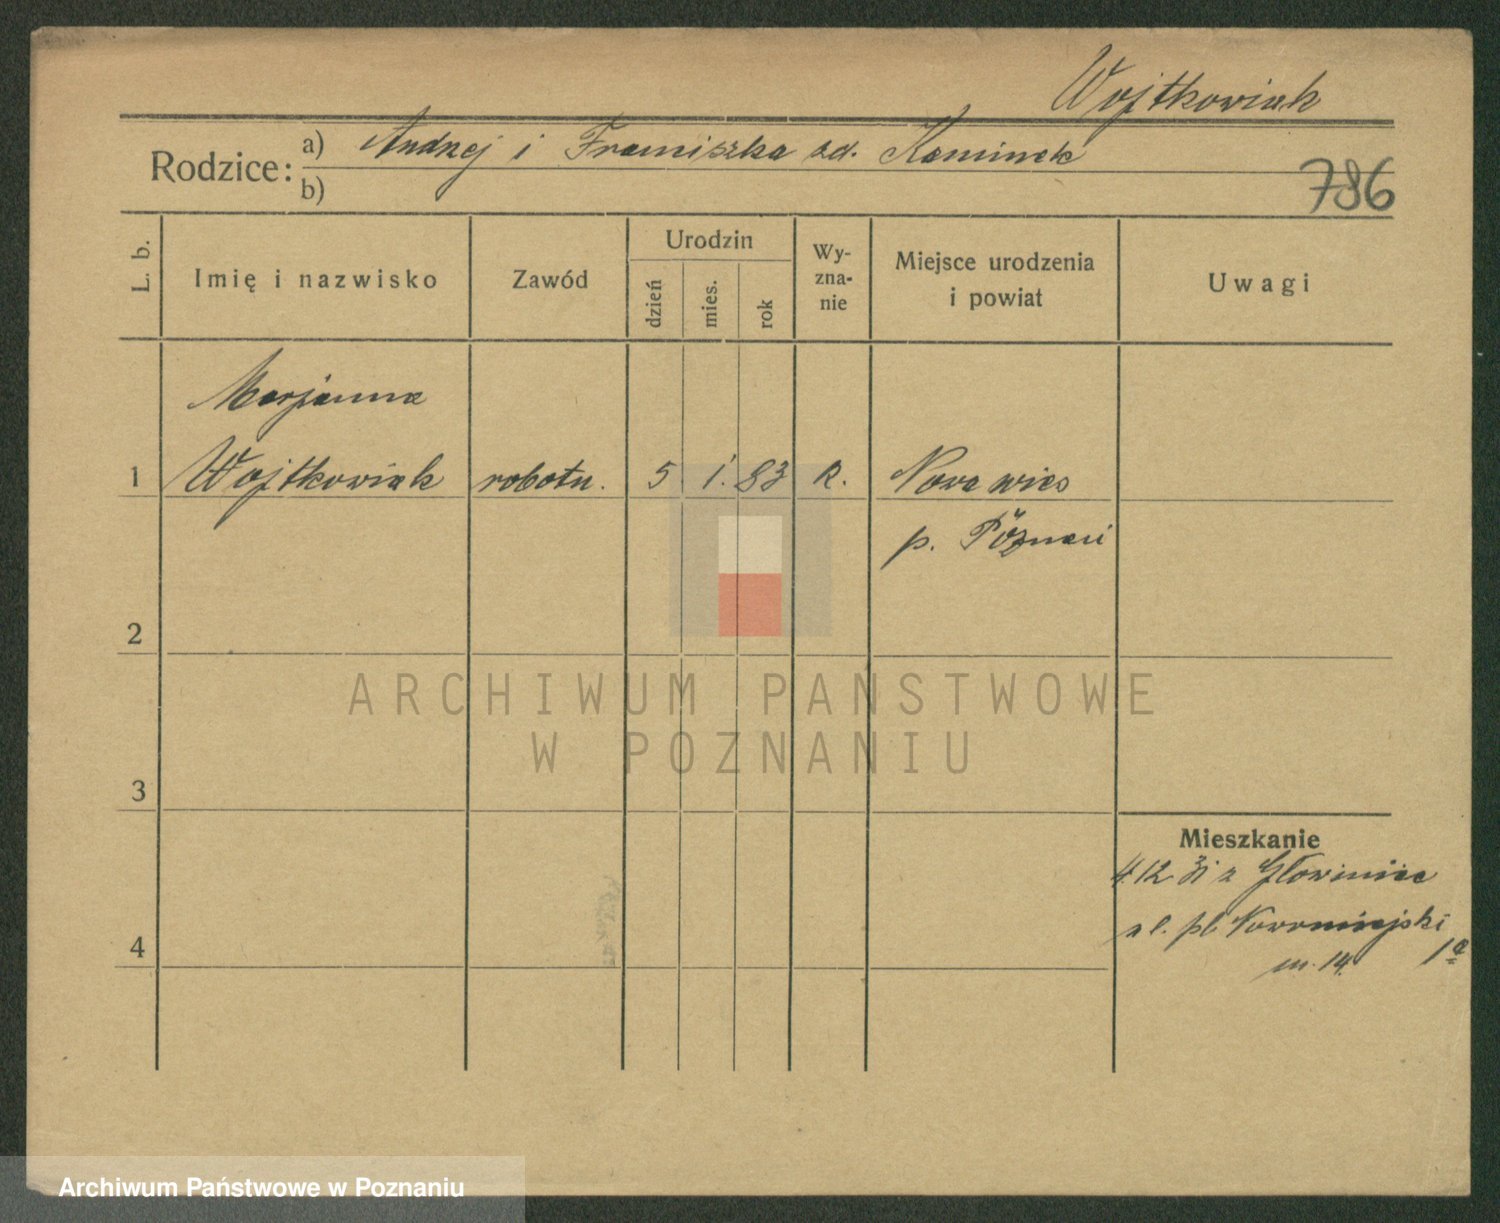 Wojtkowiak
Rodzice: a) Andrzej i Franciszka zd. Kaminek
b)
786
L. b.
Imię i nazwisko
Zawód
Urodzin
dzień
mies.
rok
Wy-
zna-
nie
Miejsce urodzenia
i powiat
Uwagi
Marjanna
1 Wojtkowiak robotn. 5 1. 83 R. Nowa wies
p. Poznań
2
ARCHIWUM PAŃSTWOWE
W POZNANIU
3
Mieszkanie
4.12 31 z Główniec
pl. Nowomiejski
4
m. 14. 1a
Archiwum Państwowe w Poznaniu